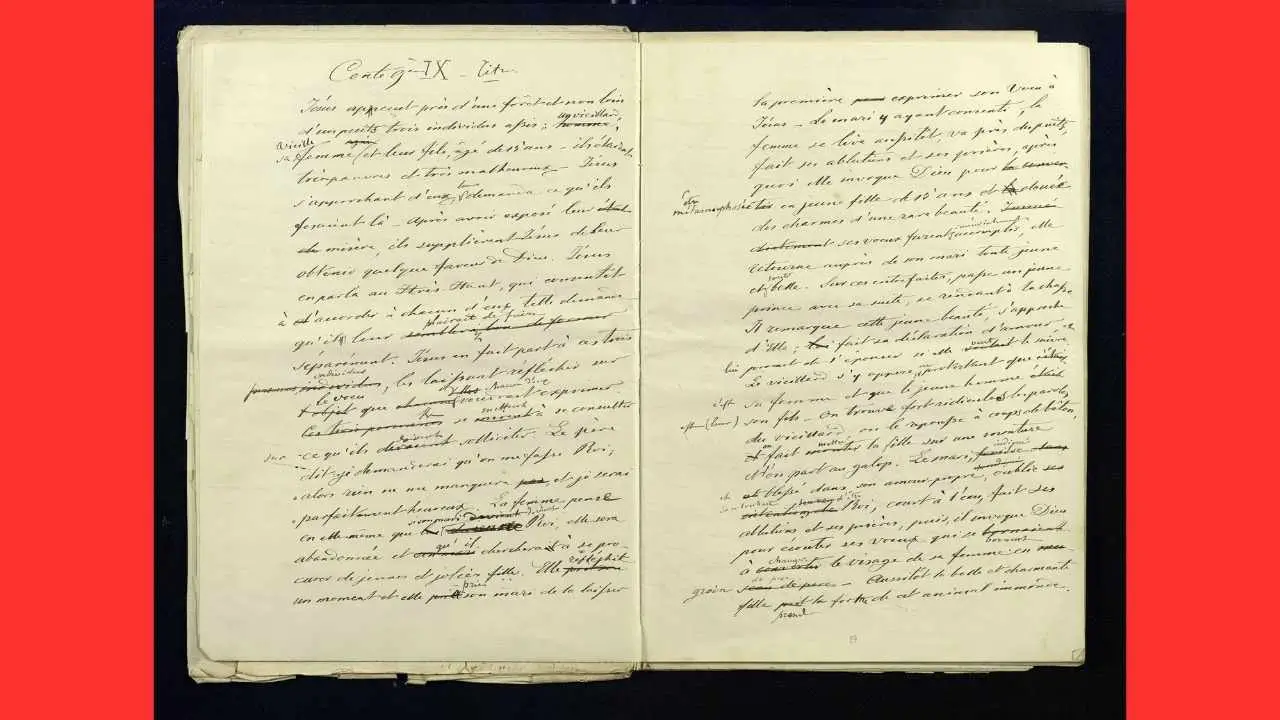 Conte IX - Titre
Jésus aperçut près d'une forêt et non loin
d'un puits trois individus assis; un vieillard,
sa vieille femme et leur fils, âgé de 18 ans - ils étaient
très pauvres et très malheureux - Jésus
s'approchant d'eux demanda ce qu'ils
faisaient là - Après avoir exposé leur état
de misère, ils supplièrent Jésus de leur
obtenir quelque faveur de Dieu. Jésus
en parla au Très Haut, qui consentit
à accorder à chacun d'eux telle demande
qu'il leur plairait de faire
séparément. Jésus en fit part à ces trois
individus, les laissant réfléchir sur
le vœu que chacun d'eux exprimer
Ces trois personnes se mettent à se consulter
sur ce qu'ils solliciter. Le père
dit: je demanderai qu'on me fasse Roi,
alors rien ne me manquera et je serai
parfaitement heureux. La femme pense
en elle même que Roi, elle sera
abandonnée et qu'il chercherait à se pro-
curer de jeunes et jolies filles. Elle réfléchit
un moment et elle prie son mari de la laisser
la première exprimer son vœu à
Jésus - Le mari y ayant consenti, la
femme se lève aussitôt, va près du puits,
fait ses ablutions et ses prières, après
quoi elle invoque Dieu pour
être métamorphosée en jeune fille de 18 ans et douée
des charmes d'une rare beauté.
ses vœux furent accomplis, elle
retourne auprès de son mari toute jeune
et belle. Sur ces entrefaites, passe un jeune
prince avec sa suite, se rendant à la chasse
Il remarque cette jeune beauté, s'approche
d'Elle; fait sa déclaration d'amour et
lui promet de l'épouser si elle veut le suivre.
Le vieillard s'y oppose, protestant que
c'est sa femme et que le jeune homme était
(leur) son fils - On trouve fort ridicules les paroles
du vieillard, on le repousse à coups de bâton,
on fait mettre la fille sur une monture
et l'on part au galop. Le mari, indigné
et blessé dans son amour propre, oublie ses
intention de Roi, court à l'eau, fait ses
ablutions et ses prières, puis, il invoque Dieu
pour écouter ses vœux, qui se bornaient
à changer le visage de sa femme en
groin de porc - Aussitôt la belle et charmante
fille prend la forme de cet animal immonde.